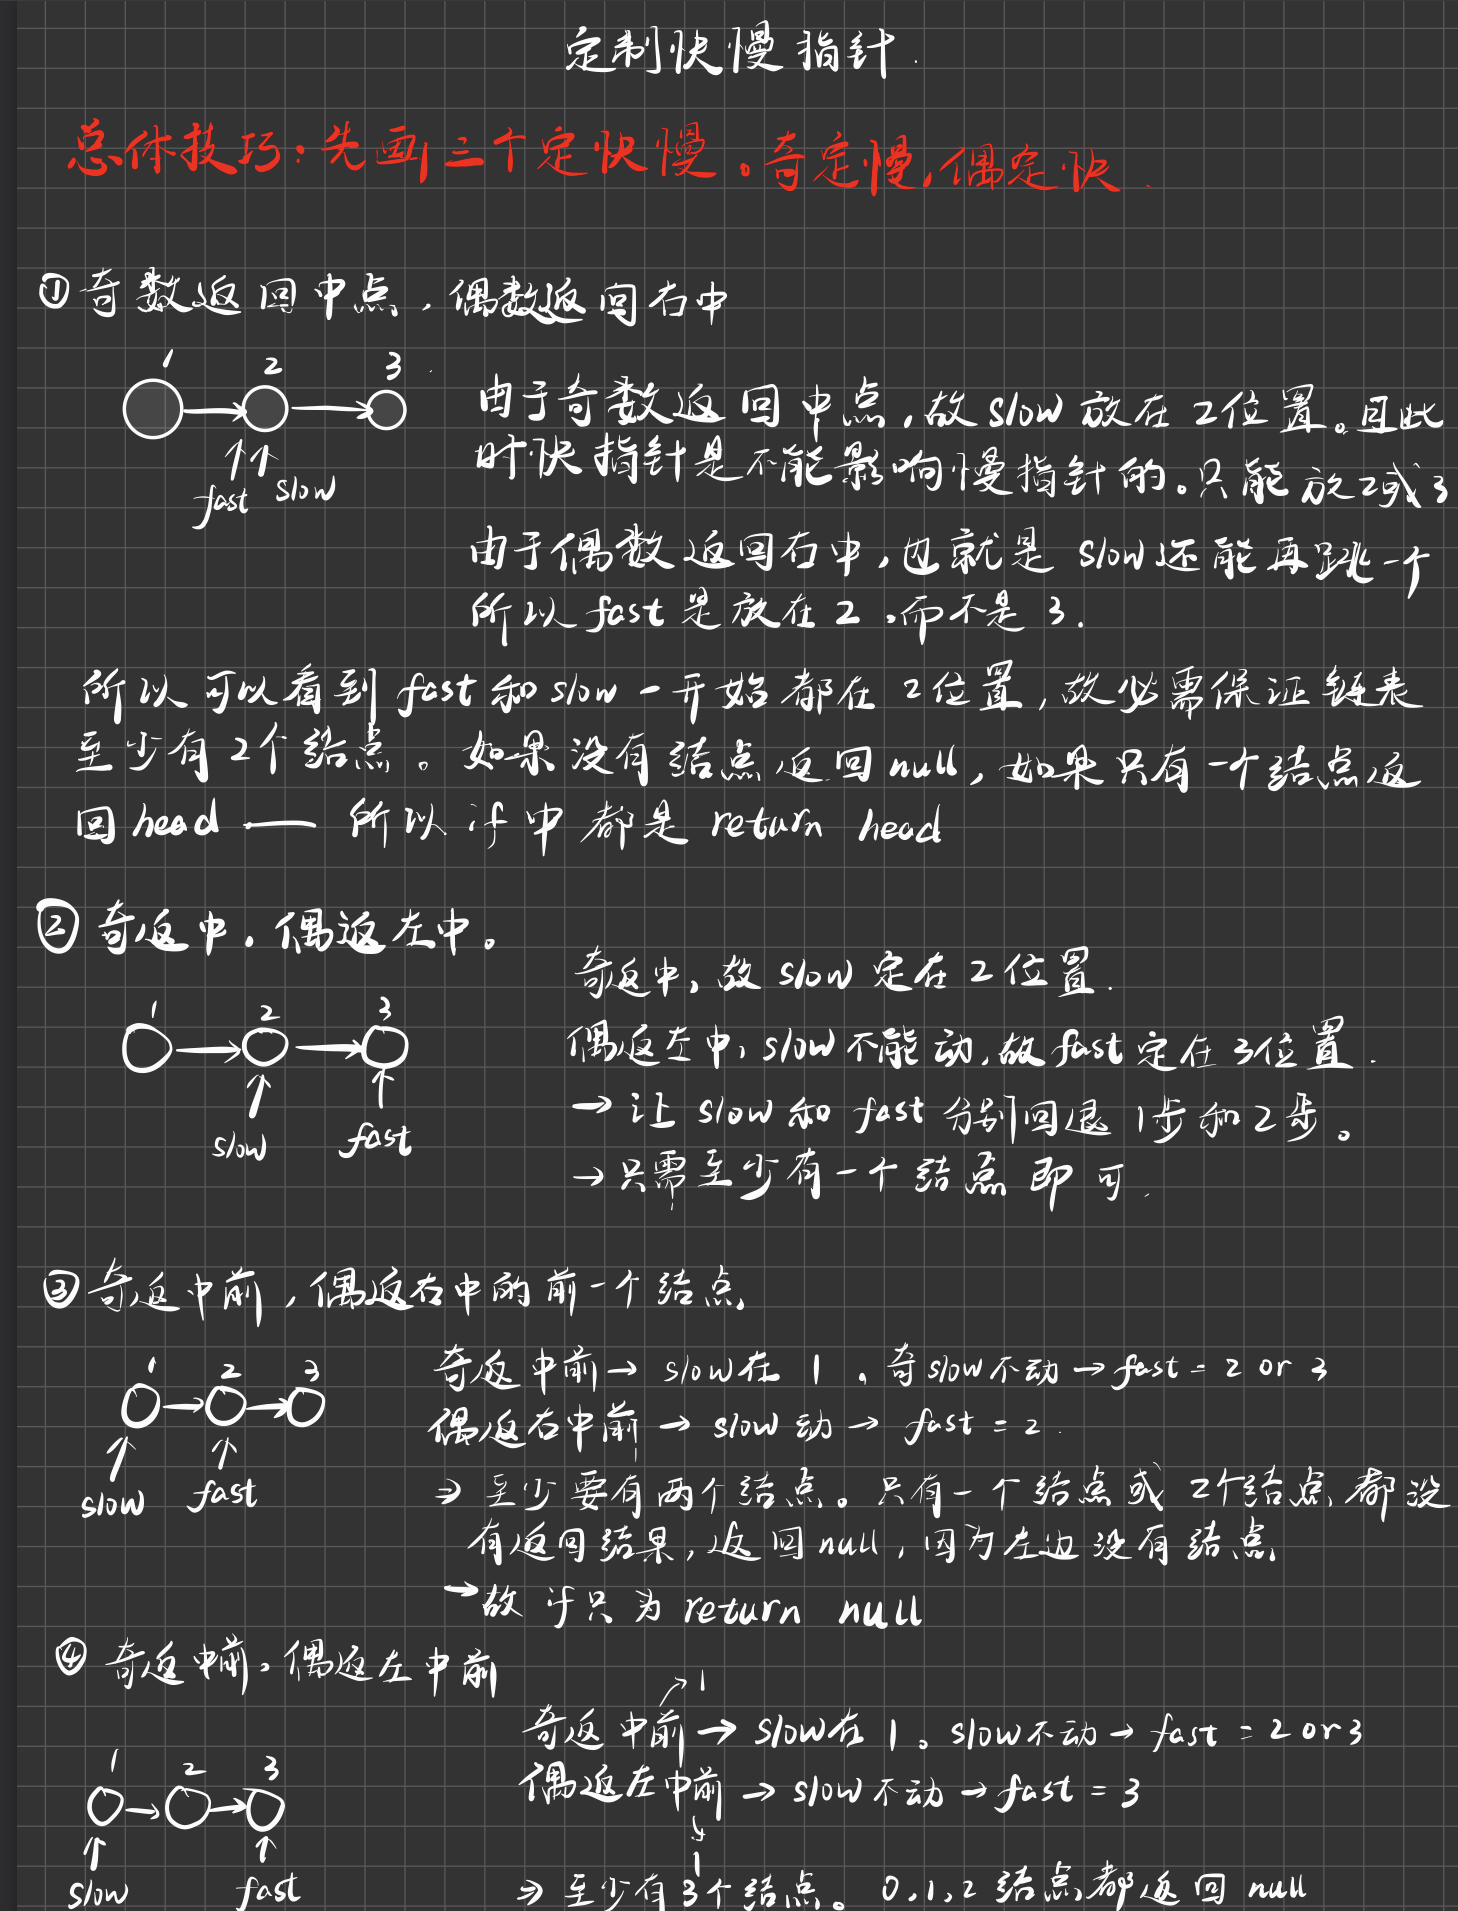 定制快慢指针.
总体技巧:先画三个定快慢。奇定慢,偶定快.
①奇数返回中点,偶数返回右中
1 2 3
fast slow
由于奇数返回中点,故slow放在2位置。且此
时快指针是不能影响慢指针的。只能放2或3
由于偶数返回右中,也就是slow还能再跳一个
所以fast是放在2,而不是3.
所以可以看到fast和slow一开始都在2位置,故必需保证链表
至少有2个结点。如果没有结点返回null,如果只有一个结点返
回head — 所以if中都是return head
②奇返中,偶返左中。
1 2 3
slow fast
奇返中,故slow定在2位置.
偶返左中,slow不能动,故fast定在3位置.
→让slow和fast分别回退1步和2步。
→只需至少有一个结点即可.
③奇返中前,偶返右中的前一个结点
1 2 3
slow fast
奇返中前→slow在1。奇slow不动→fast=2 or 3
偶返右中前→slow动→fast=2.
⇒至少要有两个结点。只有一个结点或2个结点都没
有返回结果,返回null,因为左边没有结点
→故if只为return null
④奇返中前。偶返左中前
1 2 3
slow fast
1
奇返中前→slow在1。slow不动→fast=2 or 3
偶返左中前→slow不动→fast=3
1
⇒至少有3个结点。0,1,2结点都返回null